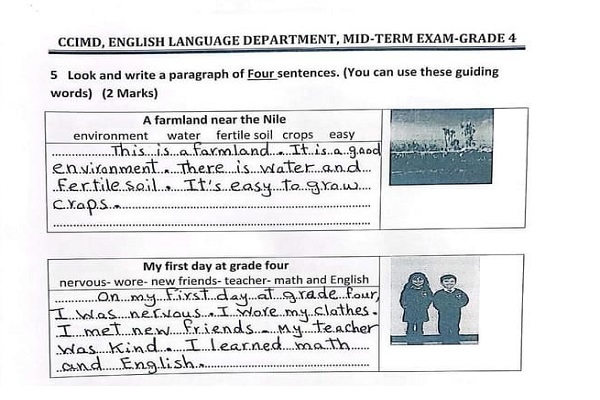 CCIMD, ENGLISH LANGUAGE DEPARTMENT, MID-TERM EXAM-GRADE 4
5 Look and write a paragraph of Four sentences. (You can use these guiding
words) (2 Marks)
A farmland near the Nile
environment water fertile soil crops easy
This is a farmland. It is a good
environment. There is water and
fertile soil. It's easy to grow
crops.
My first day at grade four
nervous- wore- new friends- teacher- math and English
On my first day at grade four,
I was nervous. I wore my clothes.
I met new friends. My teacher
was kind. I learned math
and English.